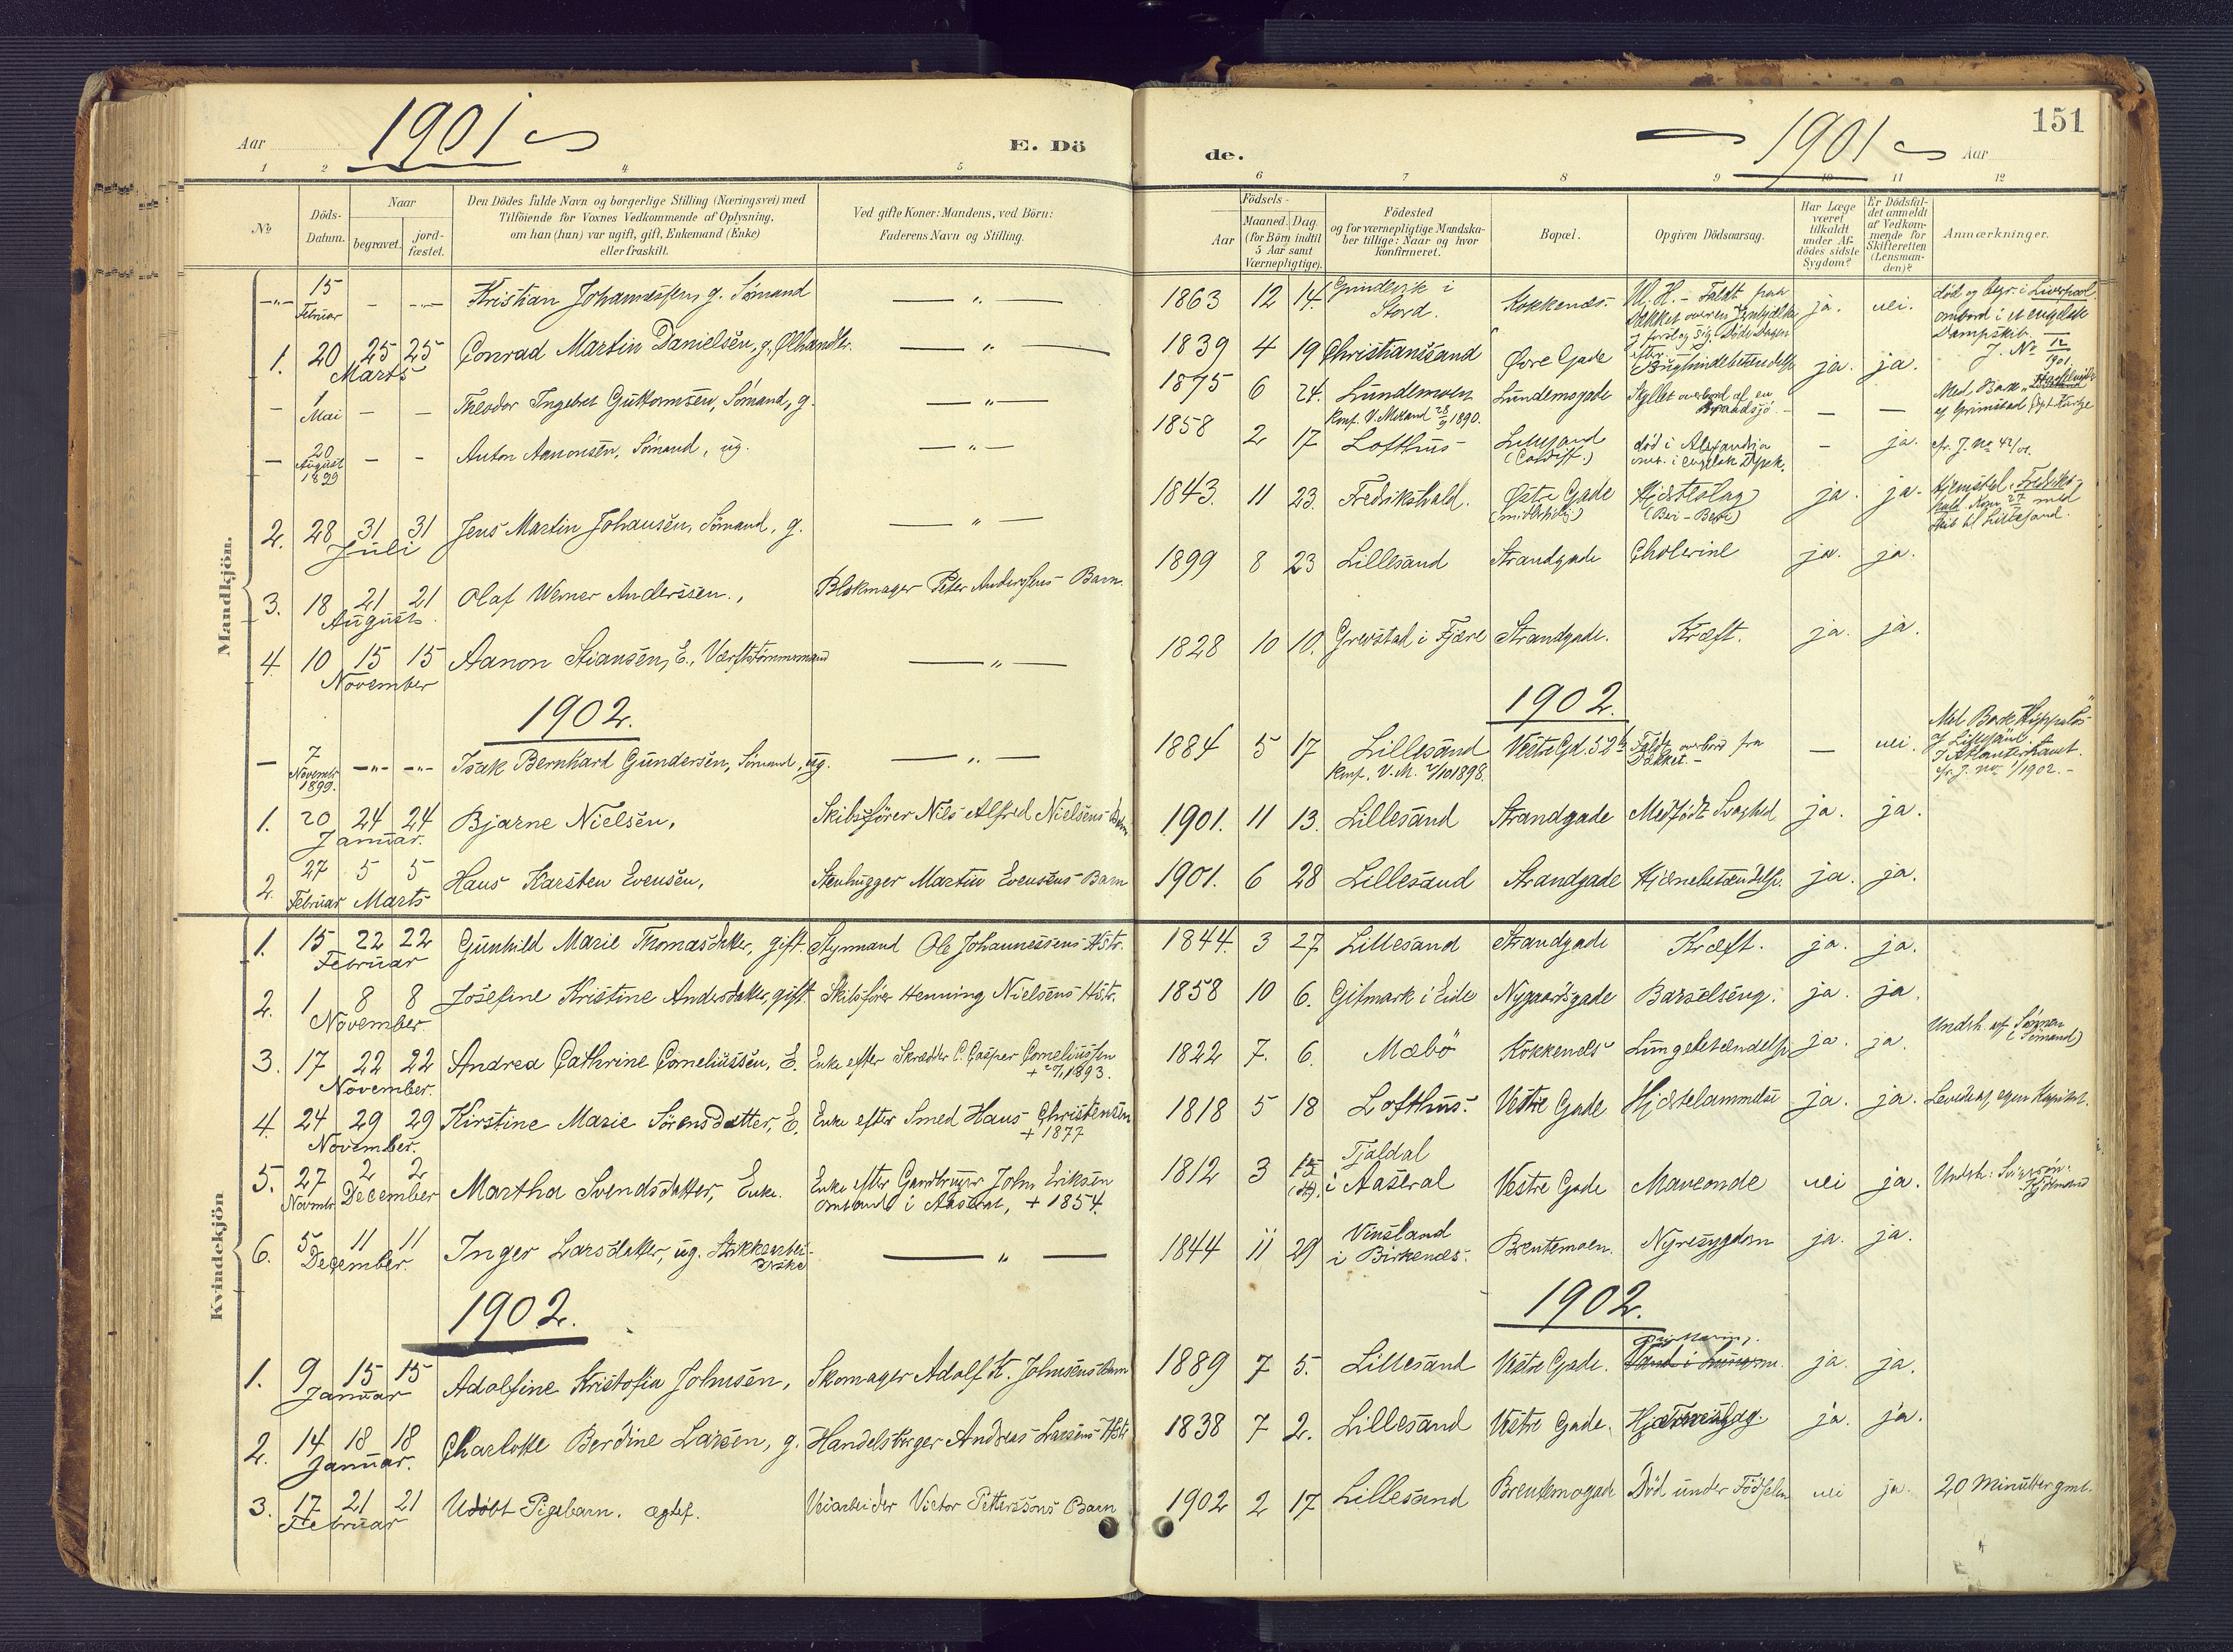 151
Aar 1901
E. Dö
de.
1901 Aar
1 2 4 5
6 7 8 9 10 11 12
№
Döds-
Datum.
Naar
begravet.
jord-
fæstet.
Den Dödes fulde Navn og borgerlige Stilling (Næringsvei) med
Tilföiende for Voxnes Vedkommende af Oplysning,
om han (hun) var ugift, gift, Enkemand (Enke)
eller fraskilt.
Ved gifte Koner: Mandens, ved Börn:
Faderens Navn og Stilling.
Födsels-
Aar
Maaned. Dag.
(for Börn indtil
5 Aar samt
Værnepligtige).
Födested
og for værnepligtige Mandska-
ber tillige: Naar og hvor
konfirmeret.
Bopæl.
Opgiven Dödsaarsag.
Har Læge
været
tilkaldt
under Af-
dödes sidste
Sygdom?
Er Dödsfal-
det anmeldt
af Vedkom-
mende for
Skifteretten
(Lensman-
den)?
Anmærkninger.
Mandkjön.
—"— 15 Februar - —"— Kristian Johannessen, g. Sømand —"— 1863 12 14. i Stord. Kokkenes. ja. nei. død og begr. i Liverpool ombord i et engelsk Dampskib. J. № 12/1901.
1. 20 25 25 Marts Conrad Martin Danielsen, g., Ølhandler. —"— 1839 4 19 Christianssand Øvre Gade ja. ja.
- 1 Mai - - Theodor Ingebret Guttormsen, Sømand, g. —"— 1875 6 24. Lundemoen Lundemogade Skyllet overbord af en - — — Med Bark af Grimstad
- 20 August 1899 - - Anton Aanonsen, Sømand, ug. —"— 1858 2 17 Lofthus Lillesand (Cardiff.) død i Alexandria - ja. cfr. J. No 42/01.
2. 28 31 31 Juli Jens Martin Johansen, Sømand, g. —"— 1843. 11 23. Fredrikshald. Østre Gade Hjerteslag (Beri-Beri) ja. ja. Hjemsted: med Skib til Lillesand.
3. 18 21 21 August Olaf Werner Anderssen., Blokmager Peter Anderssens Barn. 1899 8 23 Lillesand Strandgade Cholerine ja. ja.
4. 10 15 15 November Aanon Stiansen, E., Værftstømmermand —"— 1828 10 10. Grevstad i Fjære Strandgade. Kræft. ja. ja.
1902. 1902.
— 7 Novembr 1899. —"— —"— Isak Bernhard Gundersen, Sømand, ug. —"— 1884 5 17 Lillesand Konf. V.M. 2/10 1898. Vestre Gd. 52 b Faldt overbord fra Dækket.- — nei. Med Bark af Lillesand. I Atlanterhavet. cfr. J. no 1/1902.-
1. 20 24 24 Januar. Bjarne Nielsen, Skibsfører Nils Alfred Nielsens Barn 1901. 11 13. Lillesand Strandgade Medfødt Svaghed ja. ja.
2. 27 5 5 Februar Marts Hans Karsten Evensen, Stenhugger Martin Evensens Barn 1901. 6 28 Lillesand Strandgade Hjernebetændelse. ja. ja.
Kvindekjön
1. 15 22 22 Februar Gunhild Marie Thomasdatter, gift. Styrmand Ole Johannessens Hstr. 1844. 3 27 Lillesand Strandgade Kræft. ja. ja.
2. 1 8 8 November. Josefine Kristine Andersdatter, gift. Skibsfører Henning Nielsens Hstr. 1858 10 6. Gitmark i Eide Nygaardsgade Barselseng. ja. ja.
3. 17 22 22 November. Andrea Cathrine Corneliussen, E. Enke efter Skrædder C. Casper Corneliussen 1822 7. 6. Mæbø Kokkenes Lungebetændelse ja. ja. Undsh. af Sønnen (Sømand)
4. 24 29 29 November. Kirstine Marie Sørensdatter, E. Enke efter Smed Hans Christensen + 1877 1818 5 18 Lofthus. Vestre Gade Hjertelammelse ja. ja. Levede af egen Kapital.
5. 27 2 2 Novembr December Martha Svendsdatter, Enke. Enke efter Gaardbruger John Eriksen i Aaseral, + 1854. 1812 3 15 Tjaldal i Aaseral Vestre Gade nei ja. Undsh:
6. 5 11 11 December. Inger Larsdatter, ug. Strikkearbeiderske —"— 1844 11 29 Vinsland i Birkenes. Brentemoen. Nyresygdom ja. ja.
1902. 1902.
1. 9 15 15 Januar Adolfine Kristofia Johnsen, Skomager Adolf K. Johnsens Barn 1889 7 5. Lillesand Vestre Gade. ja. ja.
2. 14 18 18 Januar. Charlotte Berdine Larsen, g. Handelsborger Andreas Larsens Hstr 1838 7 2. Lillesand Vestre Gade. ja. ja.
3. 17 21 21 Februar Udøbt Pigebarn. ægtef. Veiarbeider Victor Petterssons Barn 1902 2 17 Lillesand Brentemogade Død under Fødselen nei ja. 20 Minutter gml.